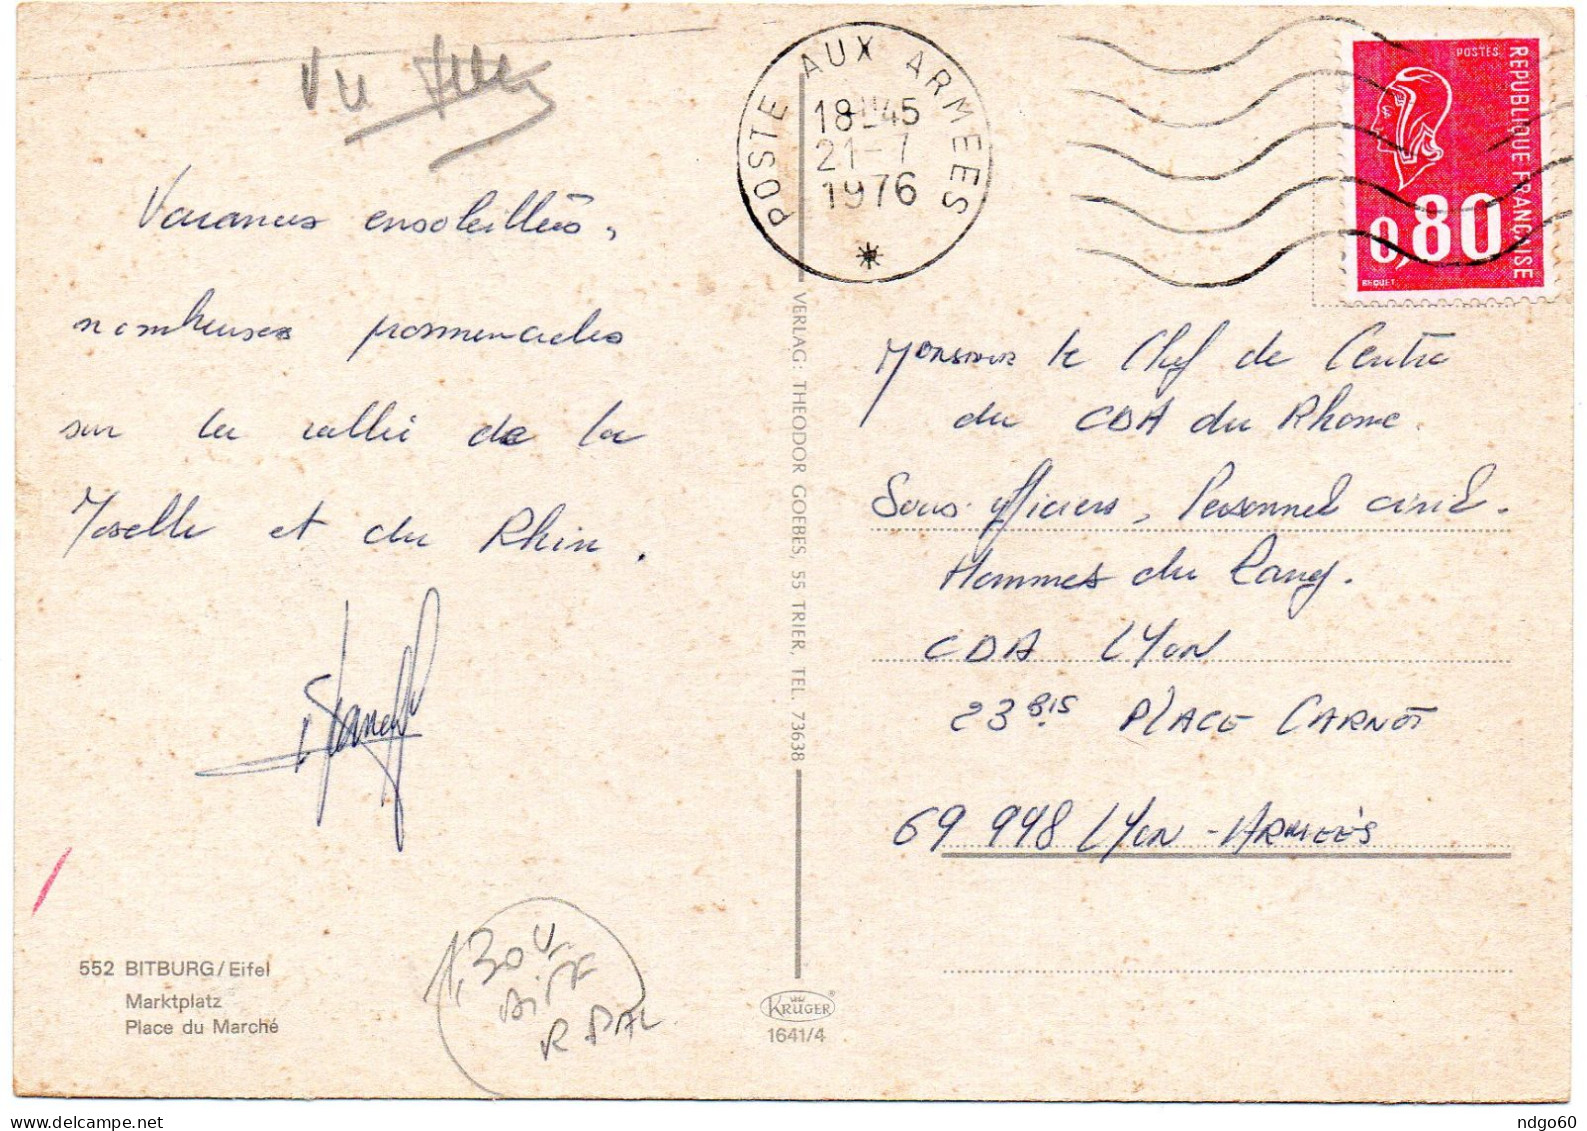 Vu
Vacances ensoleillées,
nombreuses promenades
sur la vallée de la
Moselle et du Rhin.
552 BITBURG/Eifel
Marktplatz
Place du Marché
1,30
POSTE AUX ARMEES
18-45
21-7
1976
*
VERLAG: THEODOR GOEBES, 55 TRIER, TEL. 73638
KRÜGER®
1641/4
POSTES
REPUBLIQUE FRANÇAISE
0,80
BEQUET
Monsieur le Chef de Centre
du CDA du Rhone.
Sous-officiers, Personnel civil.
Hommes du Rang.
CDA LYON
23 BIS PLACE CARNOT
69 998 LYON-ARMEES
delcampe.net
ndgo60